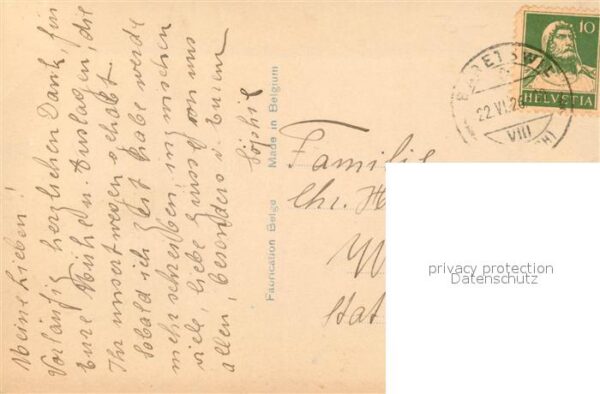 Meine Lieben!
Vorläufig herzlichen Dank, für
Eure Mühen u. Auslagen, die
Ihr unsertwegen gehabt.
Sobald ich Zeit habe werde
mehr schreiben, inzwischen
viele, liebe Grüsse von uns
allen, besonders v. Eurem
Fabrication Belge Made in Belgium
Familie
Chr. H
W
Stat
10
HELVETIA
22.VI.26
VIII
privacy protection
Datenschutz